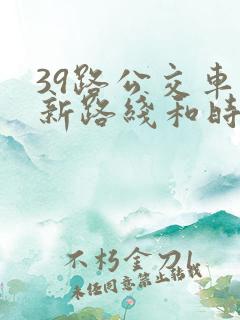 39路公交车
新路綫和时
不朽金刀
未经同意禁止转载